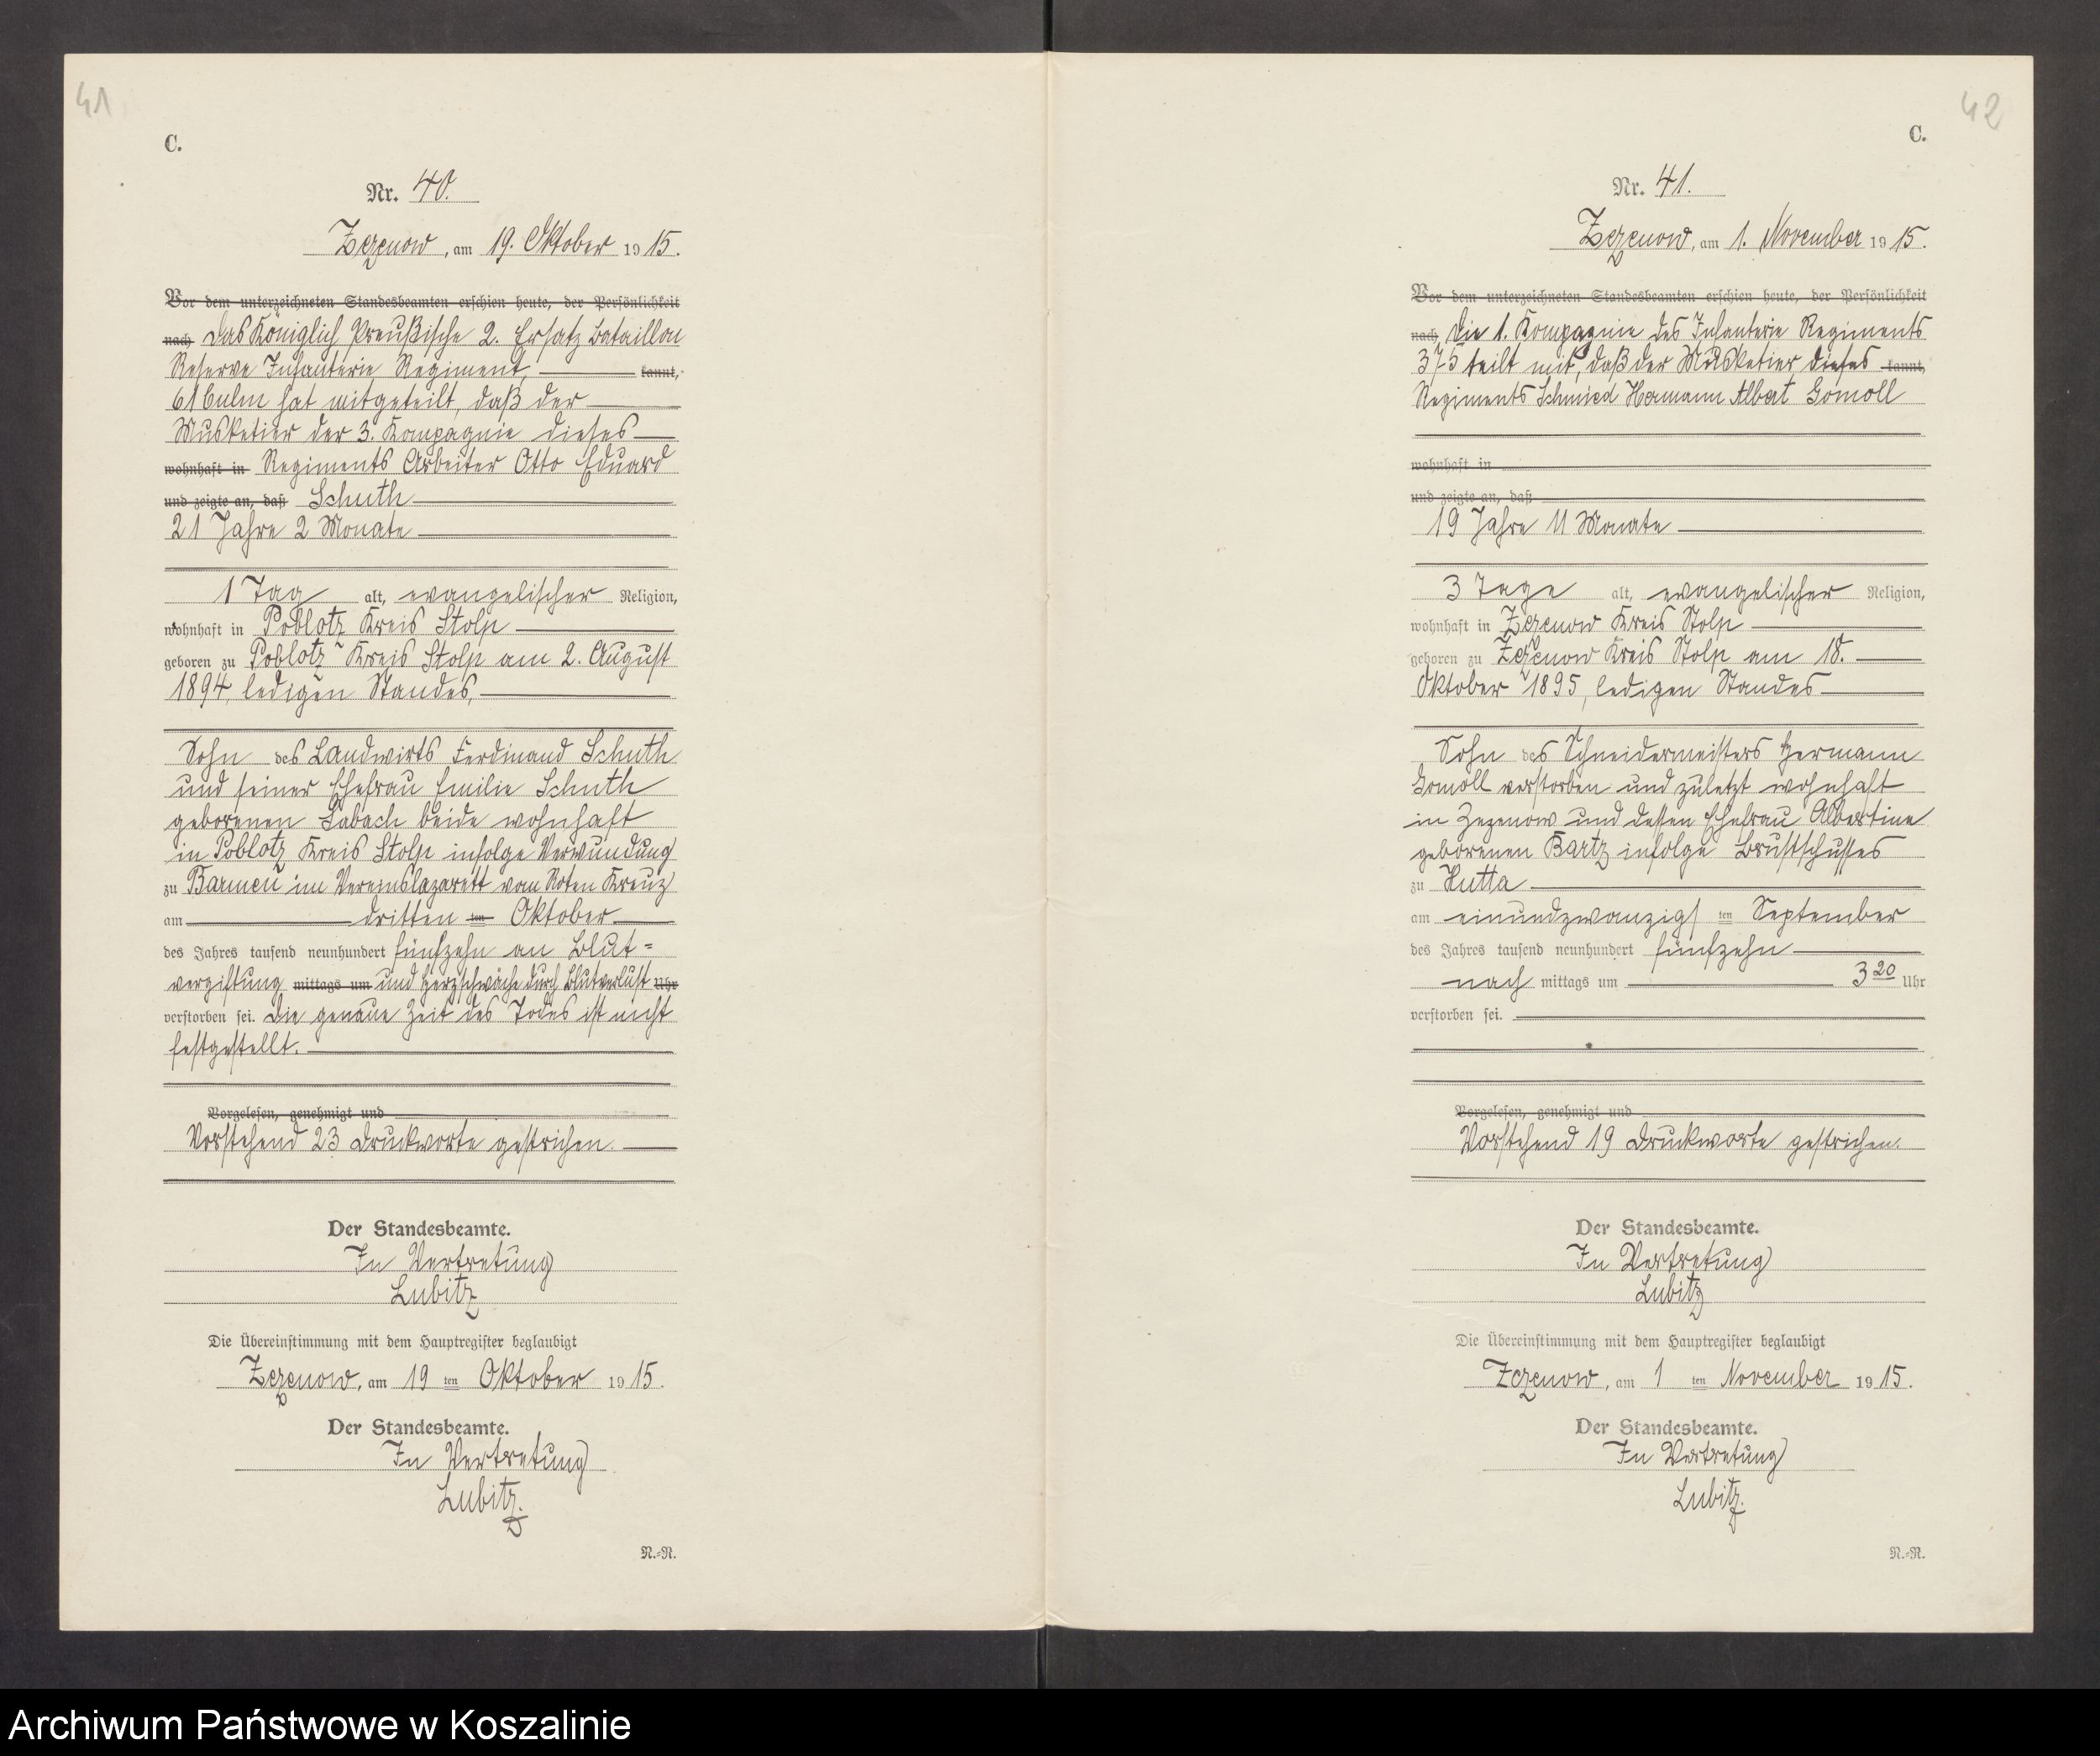 41
C.
Nr. 40.
Zezenow, am 19. Oktober 1915.
Vor dem unterzeichneten Standesbeamten erschien heute, der Persönlichkeit
nach das Königlich Preußische 2. Ersatz Bataillon
Reserve Infanterie Regiment, kannt,
61 Culm hat mitgeteilt, daß der
Musketier der 3. Kompagnie dieses
wohnhaft in Regiments Arbeiter Otto Eduard
und zeigte an, daß Schuth
21 Jahre 2 Monate
1 Tag alt, evangelischer Religion,
wohnhaft in Poblotz Kreis Stolp
geboren zu Poblotz Kreis Stolp am 2. August
1894, ledigen Standes,
Sohn des Landwirts Ferdinand Schuth
und seiner Ehefrau Emilie Schuth
geborenen Labach beide wohnhaft
in Poblotz Kreis Stolp infolge Verwundung
zu Barmen im Vereinslazarett vom Roten Kreuz
am dritten ten Oktober
des Jahres tausend neunhundert fünfzehn an Blut-
vergiftung mittags um und Herzschwäche durch Blutverlust Uhr
verstorben sei. Die genaue Zeit des Todes ist nicht
festgestellt.
Vorgelesen, genehmigt und
Vorstehend 23 Druckworte gestrichen.
Der Standesbeamte.
In Vertretung
Lubitz
Die Übereinstimmung mit dem Hauptregister beglaubigt
Zezenow, am 19 ten Oktober 1915.
Der Standesbeamte.
In Vertretung
Lubitz.
N.=N.
42
C.
Nr. 41.
Zezenow, am 1. November 1915.
Vor dem unterzeichneten Standesbeamten erschien heute, der Persönlichkeit
nach Die 1. Kompagnie des Infanterie Regiments
375 teilt mit, daß der Musketier dieses kannt,
Regiments Schmied Hermann Albert Gomoll
wohnhaft in
und zeigte an, daß
19 Jahre 11 Monate
3 Tage alt, evangelischer Religion,
wohnhaft in Zezenow Kreis Stolp
geboren zu Zezenow Kreis Stolp am 18.
Oktober 1895, ledigen Standes
Sohn des Schneidermeisters Hermann
Gomoll verstorben und zuletzt wohnhaft
in Zezenow und dessen Ehefrau Albertine
geborenen Bartz infolge Brustschusses
zu Hutta
am einundzwanzigs ten September
des Jahres tausend neunhundert fünfzehn
nach mittags um 3 20 Uhr
verstorben sei.
Vorgelesen, genehmigt und
Vorstehend 19 Druckworte gestrichen.
Der Standesbeamte.
In Vertretung
Lubitz
Die Übereinstimmung mit dem Hauptregister beglaubigt
Zezenow, am 1 ten November 1915.
Der Standesbeamte.
In Vertretung
Lubitz.
N.=N.
Archiwum Państwowe w Koszalinie